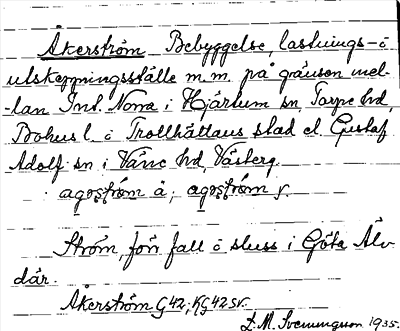 Åkerström Bebyggelse, lastnings- &
utskeppningsställe m.m. på gränsen mel-
-lan Int. Norra i Hjärtum sn, Torpe hd,
Bohus l. & Trollhättans stad el. Gustaf
Adolf sn i Väne hd, Västerg.
agɔström å; agɔström
Ström, förr fall & sluss i Göta Älv
där.
Åkerström G 42; KG 42 SV.
L. M. Svenungsson 1935.